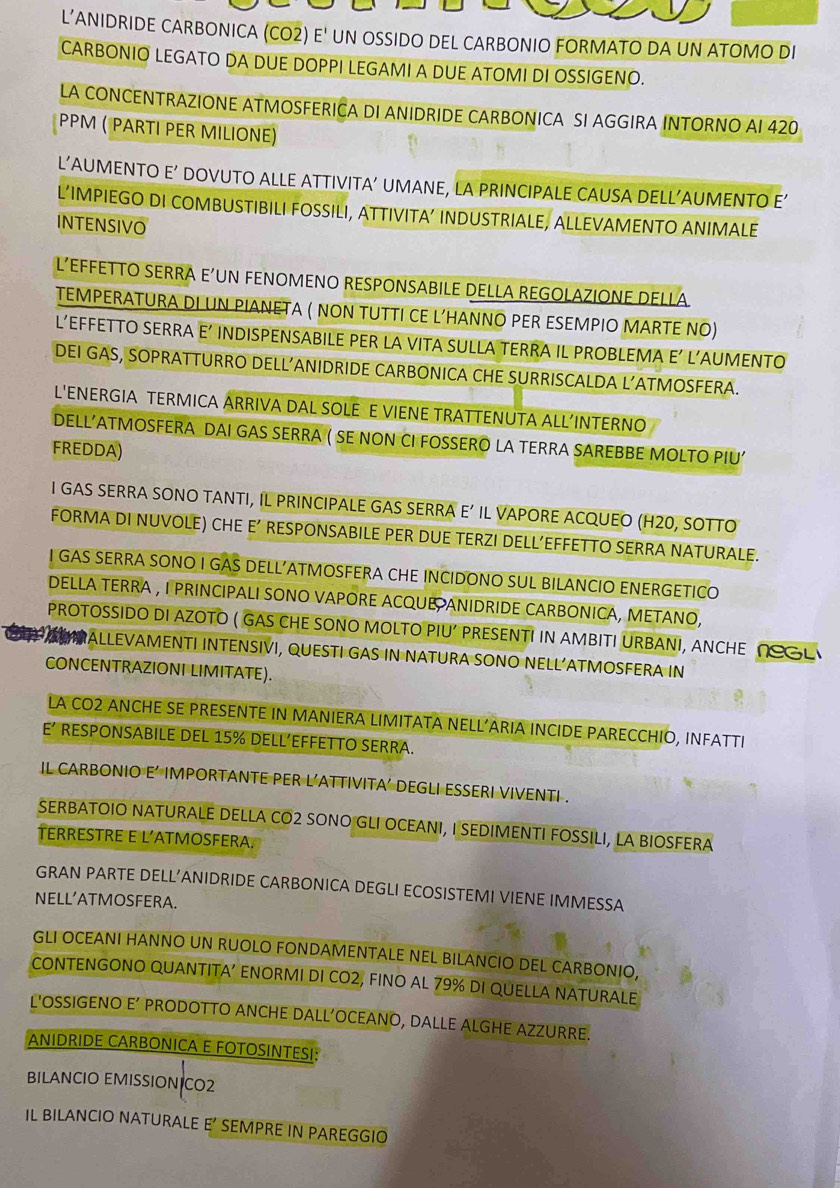 L'ANIDRIDE CARBONICA (CO2) E' UN OSSIDO DEL CARBONIO FORMATO DA UN ATOMO DI
CARBONIO LEGATO DA DUE DOPPI LEGAMI A DUE ATOMI DI OSSIGENO.
LA CONCENTRAZIONE ATMOSFERICA DI ANIDRIDE CARBONICA SI AGGIRA INTORNO AI 420
PPM ( PARTI PER MILIONE)
L'AUMENTO E' DOVUTO ALLE ATTIVITA' UMANE, LA PRINCIPALE CAUSA DELL'AUMENTO E'
L'IMPIEGO DI COMBUSTIBILI FOSSILI, ATTIVITA' INDUSTRIALE, ALLEVAMENTO ANIMALE
INTENSIVO
L'EFFETTO SERRA E'UN FENOMENO RESPONSABILE DELLA REGOLAZIONE DELLA
TEMPERATURA DI UN PIANETA ( NON TUTTI CE L'HANNO PER ESEMPIO MARTE NO)
L'EFFETTO SERRA E' INDISPENSABILE PER LA VITA SULLA TERRA IL PROBLEMA E' L'AUMENTO
DEI GAS, SOPRATTURRO DELL'ANIDRIDE CARBONICA CHE SURRISCALDA L'ATMOSFERA.
L'ENERGIA TERMICA ARRIVA DAL SOLE E VIENE TRATTENUTA ALL'INTERNO
DELL'ATMOSFERA DAI GAS SERRA ( SE NON CI FOSSERO LA TERRA SAREBBE MOLTO PIU'
FREDDA)
I GAS SERRA SONO TANTI, IL PRINCIPALE GAS SERRA E' IL VAPORE ACQUEO (H20, SOTTO
FORMA DI NUVOLE) CHE E' RESPONSABILE PER DUE TERZI DELL'EFFETTO SERRA NATURALE.
I GAS SERRA SONO I GAS DELL'ATMOSFERA CHE INCIDONO SUL BILANCIO ENERGETICO
DELLA TERRA , I PRINCIPALI SONO VAPORE ACQUEO, ANIDRIDE CARBONICA, METANO,
PROTOSSIDO DI AZOTO ( GAS CHE SONO MOLTO PIU' PRESENTI IN AMBITI URBANI, ANCHE NEGLI
ALLEVAMENTI INTENSIVI, QUESTI GAS IN NATURA SONO NELL'ATMOSFERA IN
CONCENTRAZIONI LIMITATE).
LA CO2 ANCHE SE PRESENTE IN MANIERA LIMITATA NELL'ARIA INCIDE PARECCHIO, INFATTI
E' RESPONSABILE DEL 15% DELL'EFFETTO SERRA.
IL CARBONIO E' IMPORTANTE PER L'ATTIVITA' DEGLI ESSERI VIVENTI .
SERBATOIO NATURALE DELLA CO2 SONO GLI OCEANI, I SEDIMENTI FOSSILI, LA BIOSFERA
TERRESTRE E L'ATMOSFERA.
GRAN PARTE DELL'ANIDRIDE CARBONICA DEGLI ECOSISTEMI VIENE IMMESSA
NELL'ATMOSFERA.
GLI OCEANI HANNO UN RUOLO FONDAMENTALE NEL BILANCIO DEL CARBONIO,
CONTENGONO QUANTITA' ENORMI DI CO2, FINO AL 79% DI QUELLA NATURALE
L'OSSIGENO E' PRODOTTO ANCHE DALL'OCEANO, DALLE ALGHE AZZURRE.
ANIDRIDE CARBONICA E FOTOSINTESI:
BILANCIO EMISSIONI CO2
IL BILANCIO NATURALE E' SEMPRE IN PAREGGIO